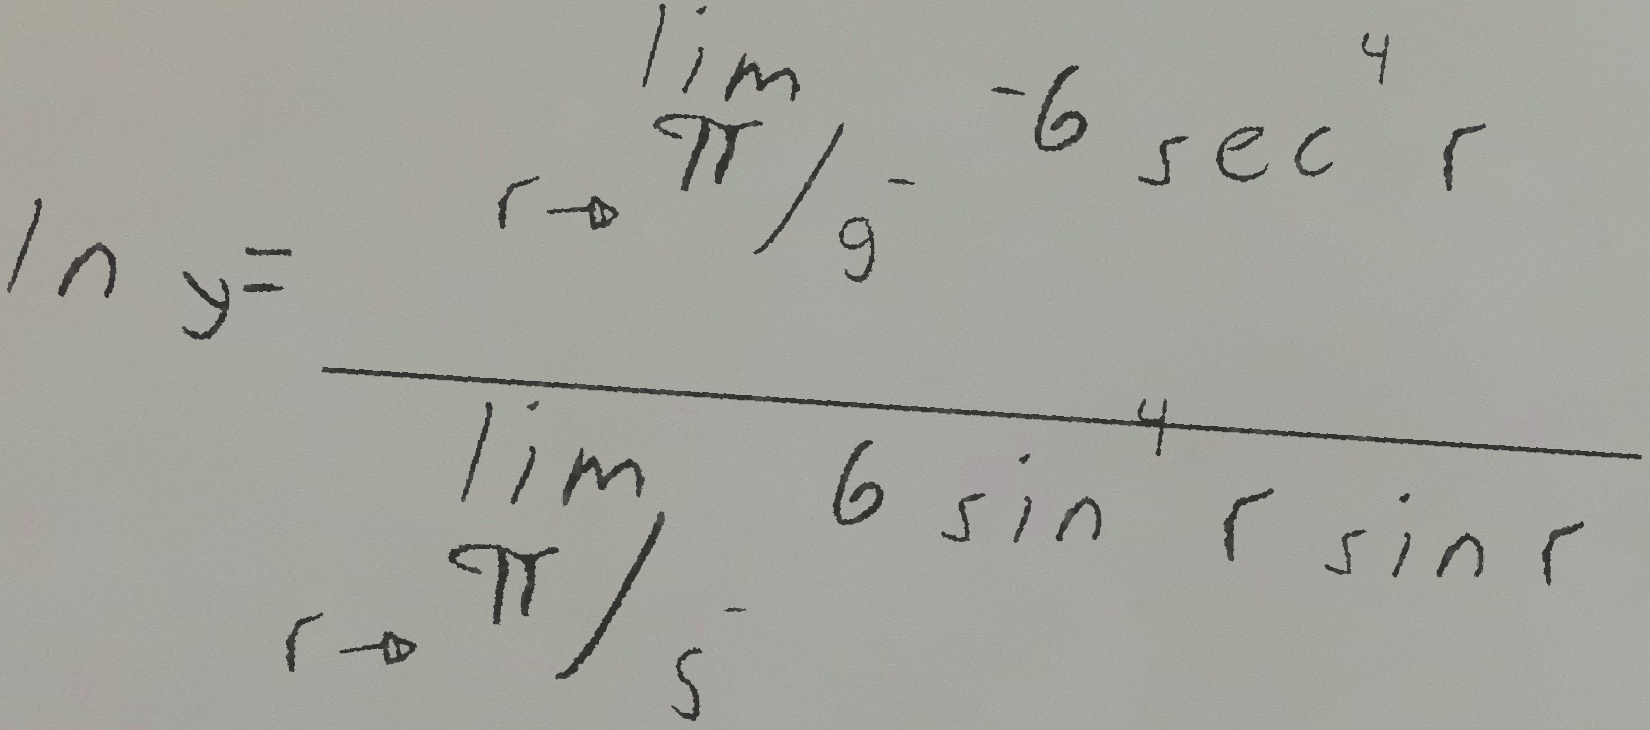 \ln y = \frac{\lim_{r \to \pi/9^-} -6 \sec^4 r}{\lim_{r \to \pi/5^-} 6 \sin^4 r \sin r}